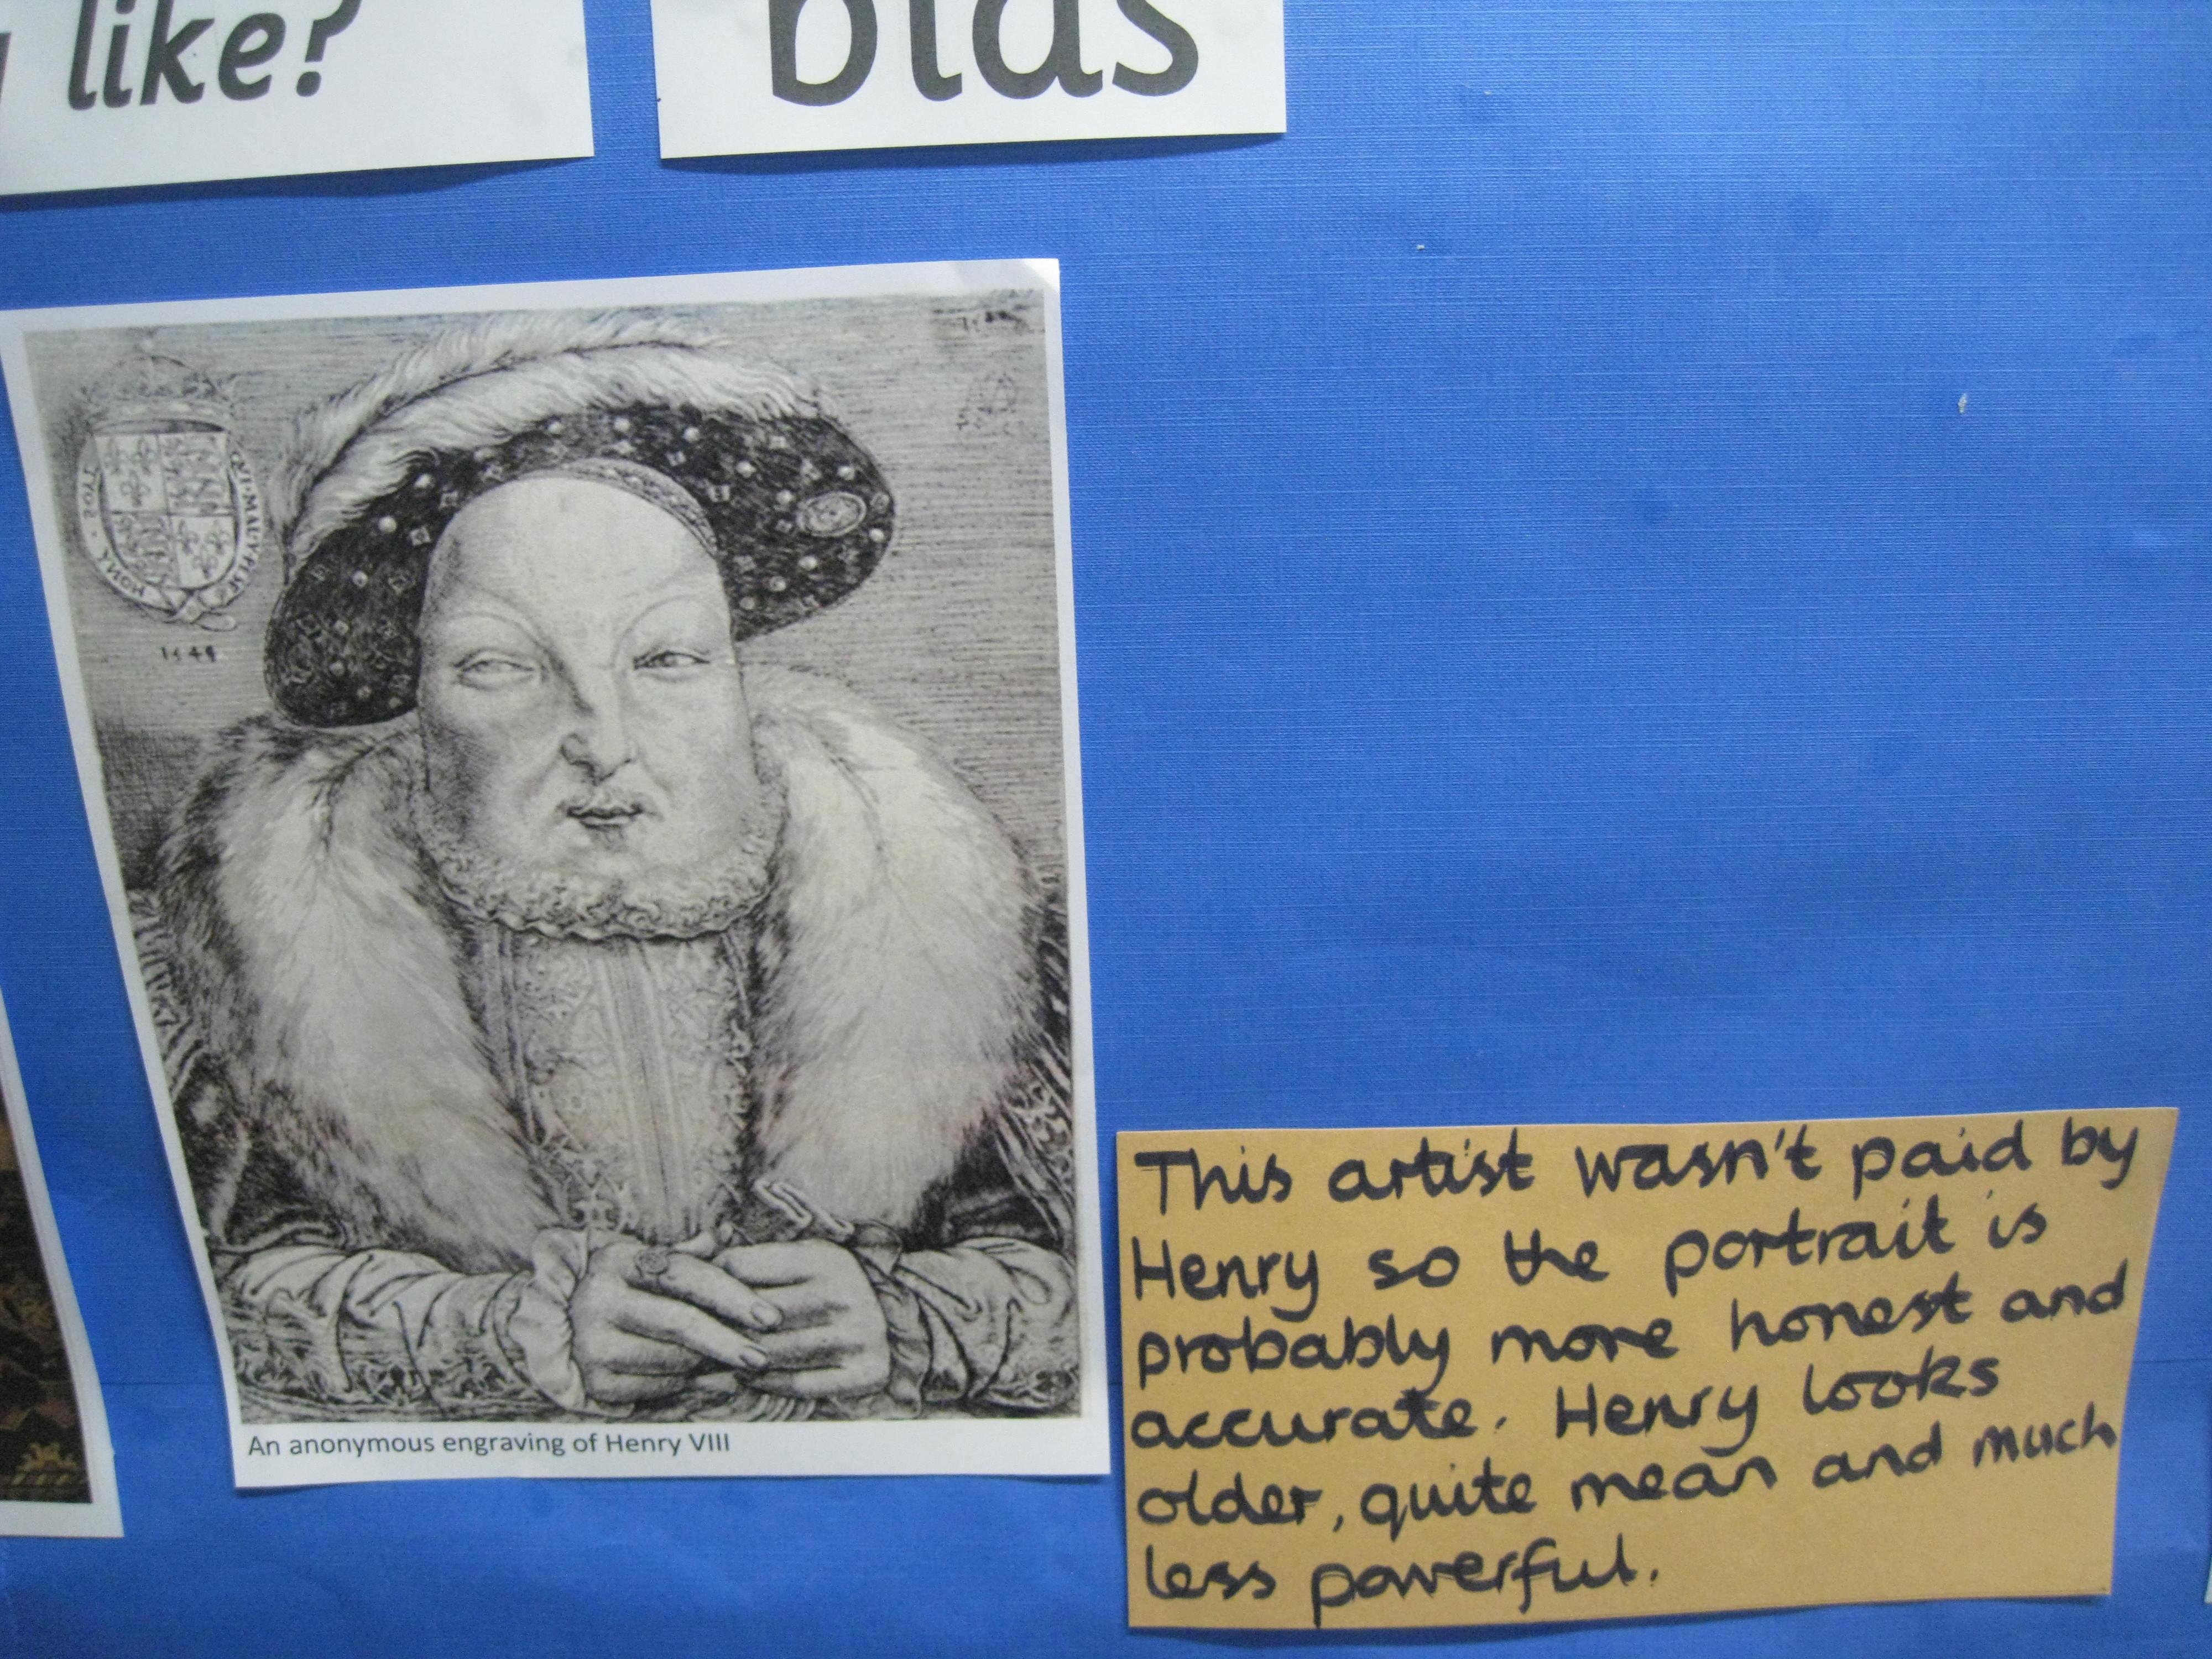 like?
bias
1544
An anonymous engraving of Henry VIII
This artist wasn't paid by
Henry so the portrait is
probably more honest and
accurate. Henry looks
older, quite mean and much
less powerful.